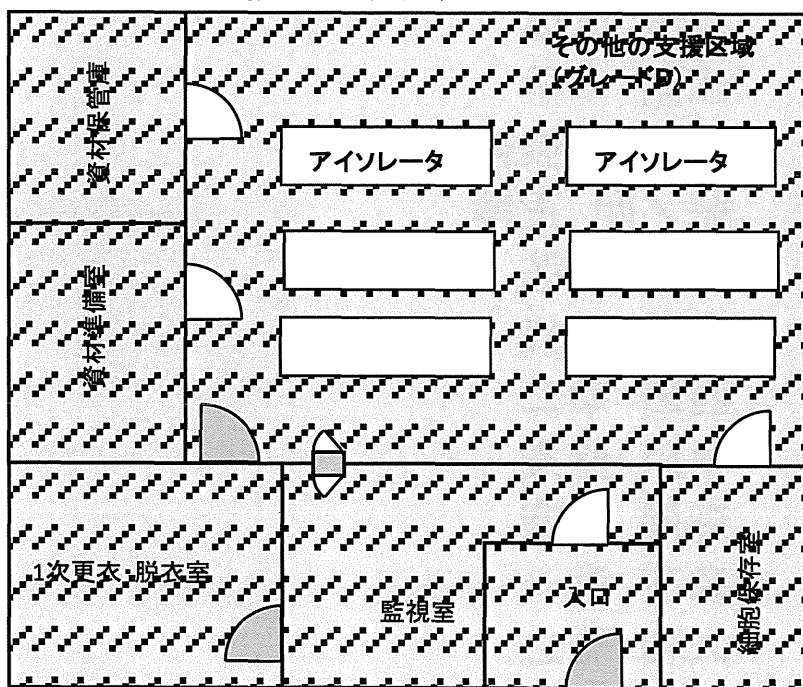 その他の支援区域
(グレードD)
資材保管庫
アイソレータ
アイソレータ
資材準備室
1次更衣・脱衣室
監視室
入口
細胞保存室